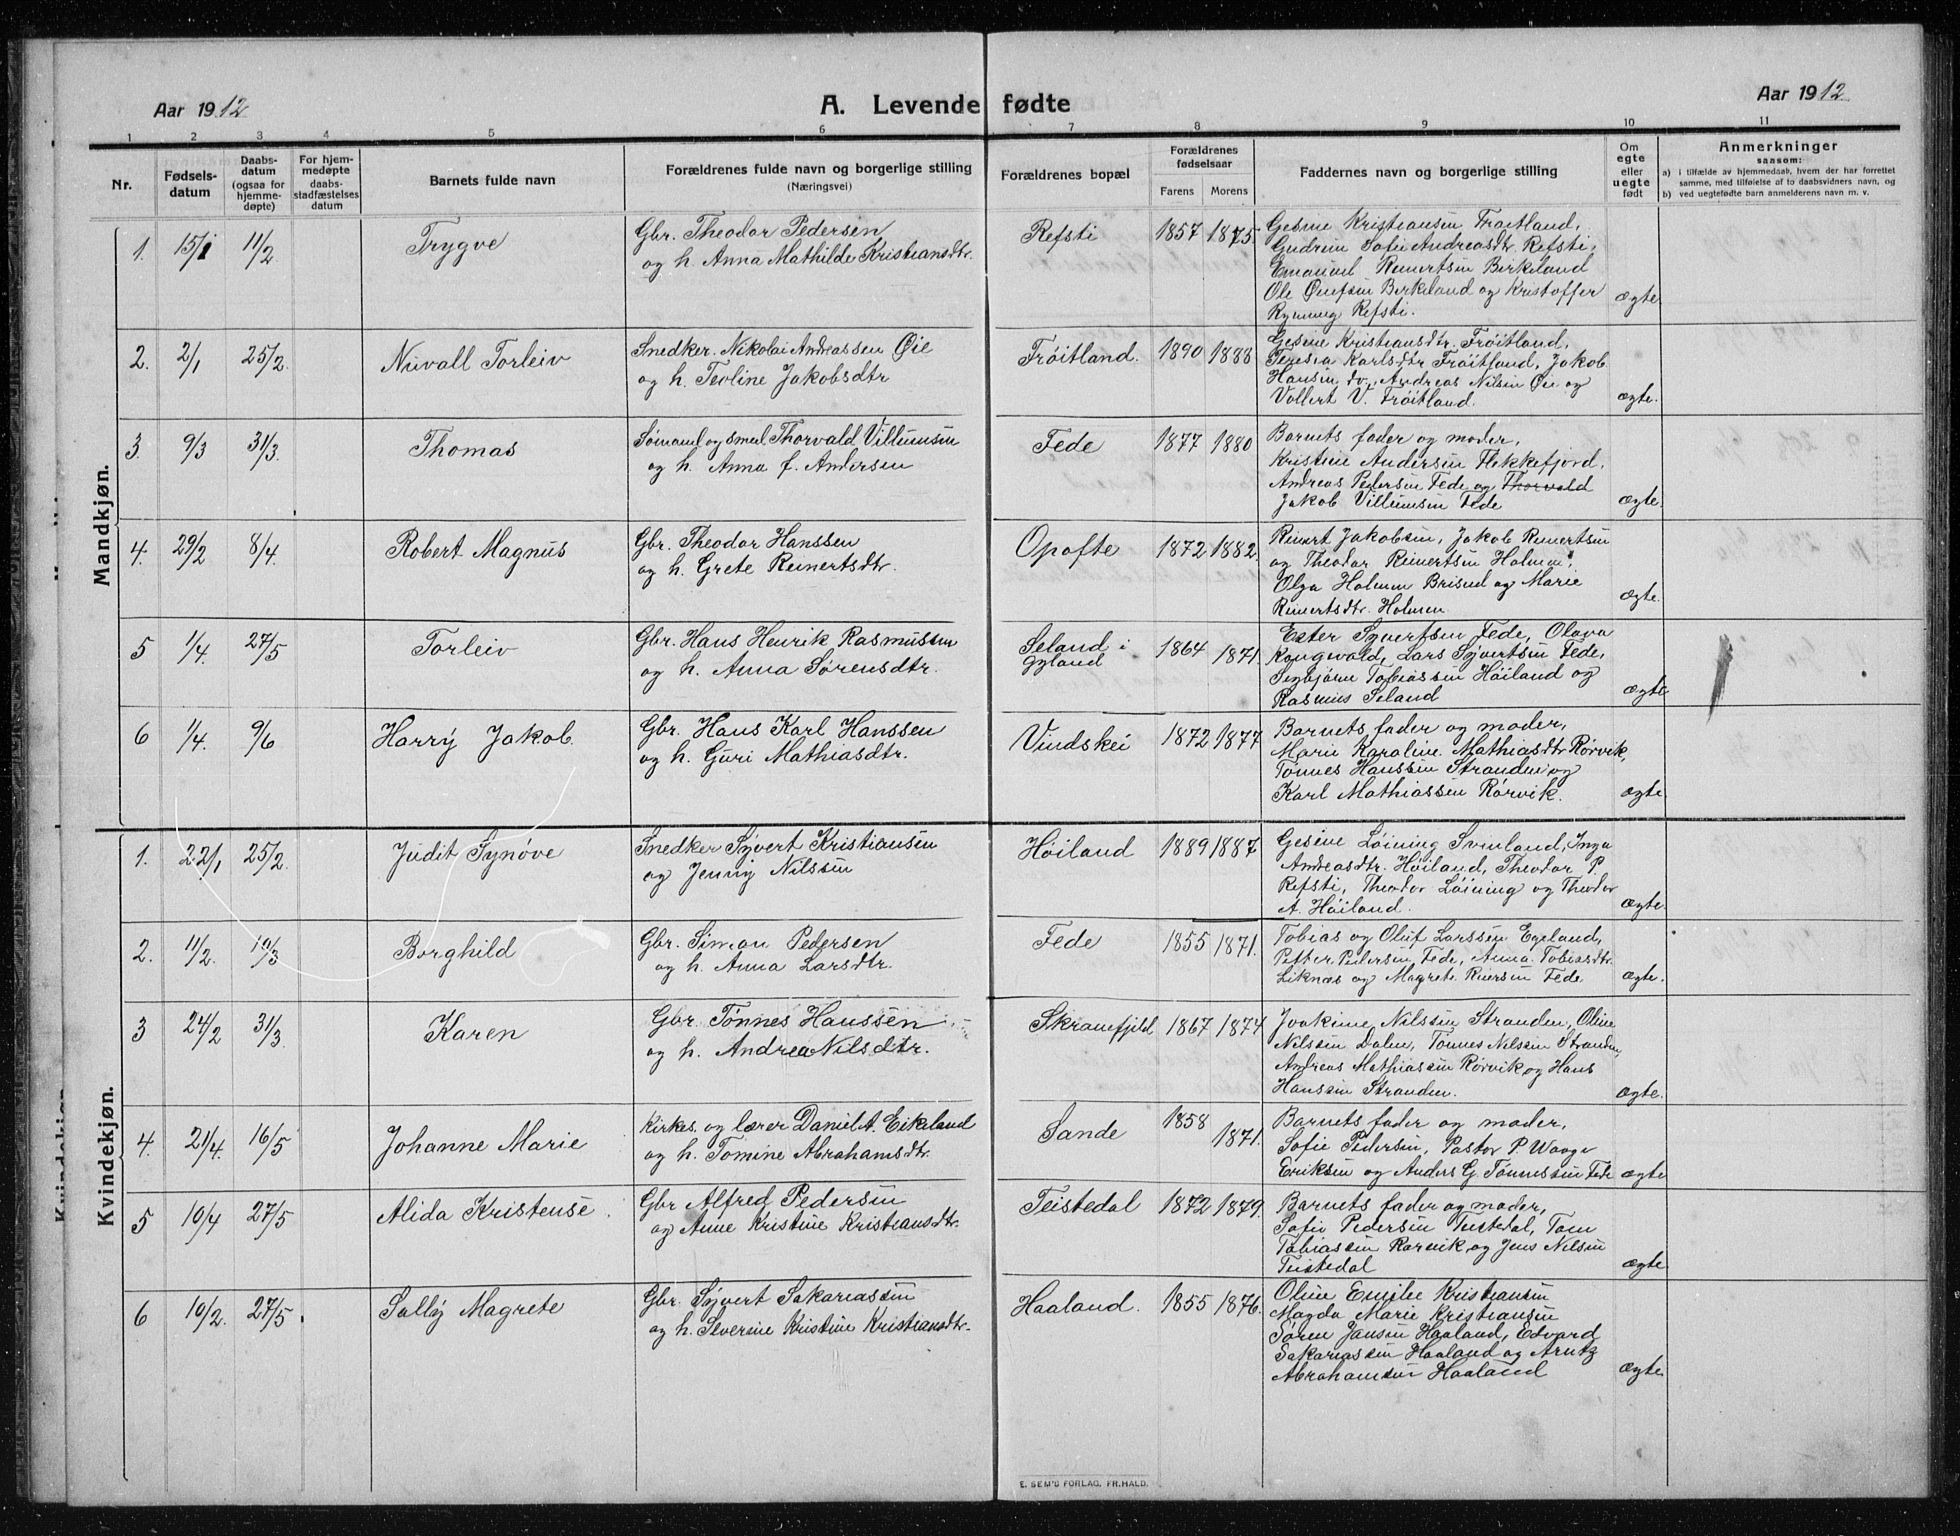 Aar 1912
A. Levende fødte
Aar 1912
1 2 3 4 5 6 7 8 9 10 11
Nr.
Fødsels-
datum
Daabs-
datum
(ogsaa for
hjemme-
døpte)
For hjem-
medøpte
daabs-
stadfæstelses
datum
Barnets fulde navn
Forældrenes fulde navn og borgerlige stilling
(Næringsvei)
Forældrenes bopæl
Forældrenes
fødselsaar
Farens Morens
Faddernes navn og borgerlige stilling
Om
egte
eller
uegte
født
Anmerkninger
saasom:
a) i tilfælde av hjemmedaab, hvem der har forrettet
samme, med tilføielse af to daabsvidners navn, og
b) ved uegtefødte barn anmelderens navn m. v.
Mandkjøn.
1. 15/1 11/2 Trygve
Gbr. Theodor Pedersen
og h. Anna Mathilde Kristiansdtr.
Refsti 1857 1875.
Gesine Kristiansen Frøitland,
Gudrun Sofie Andreasdtr. Refsti,
Emanuel Reinertsen Birkeland
Ole Birkeland og Kristoffer
Refsti.
ægte
2. 2/1 25/2. Torleiv
Snedker. Nikolai Andreassen Øie
og h. Teoline Jakobsdtr
Frøitland. 1890 1888
Gesine Kristiansdtr. Frøitland,
Teresia Karlsdtr Frøitland, Jakob
Hansen do, Andreas Nilsen Øie og
Vollert V. Frøitland.
ægte.
3. 9/3 31/3. Thomas
Sømand og smed Thorvald Villumsen
og h. Anna f. Andersen
Fede 1877 1880
Barnets fader og moder,
Kristine Andersen Flekkefjord,
Andreas Pedersen Fede og Thorvald
Jakob Villumsen Fede
ægte.
4. 29/2 8/4. Robert Magnus
Gbr. Theodor Hanssen
og h. Grete Reinertsdtr.
Opofte 1872 1882.
Reinert Jakobsen, Jakob Reinertsen
og Theodor Reinertsen Holmen,
Olga Holmen Brisud og Marie
Reinertsdtr. Holmen.
ægte.
5 1/4. 27/5 Torleiv
Gbr. Hans Henrik Rasmussen
og h. Anna Sørensdtr.
Seland i
Gyland
1864 1871.
Ester Syvertsen Fede, Olava
Kongevold, Lars Syvertsen Fede,
Tobiassen Høiland og
Rasmus Seland
ægte
6 1/4. 9/6 Harry Jakob
Gbr. Hans Karl Hanssen
og h. Guri Mathiasdtr.
Vindskei 1872 1877
Barnets fader og moder,
Marie Karoline Mathiasdtr Rørvik,
Tønnes Hanssen Stranden og
Karl Mathiassen Rørvik.
ægte
Kvindekjøn.
1. 22/1 25/2. Judit Synøve
Snedker Syvert Kristiansen
og Jenny Nilssen
Høiland 1889 1887
Gesine Løining Svinland, Inga
Andreasdtr. Høiland, Theodor P.
Refsti, Theodor Løining og Theodor
A. Høiland.
ægte.
2. 11/2. 10/3 Borghild
Gbr. Simon Pedersen
og h. Anna Larsdtr.
Fede 1855 1871.
Tobias og Oluf Larssen Egeland,
Petter Pedersen Fede, Anna Tobiasdtr.
Liknæs og Magrete Reiersen Fede
ægte.
3 24/2 31/3. Karen
Gbr. Tønnes Hanssen
og h. Andrea Nilsdtr.
Skranefjeld 1867 1874
Joakime Nilssen Stranden, Oline
Nilssen Dalen, Tønnes Nilssen Stranden,
Andreas Mathiassen Rørvik og Hans
Hanssen Stranden.
ægte.
4. 21/4. 16/5 Johanne Marie
Kirkes. og lærer Daniel A. Eikeland
og h. Tomine Abrahamsdtr.
Sande 1858 1871.
Barnets fader og moder,
Sofie Pedersen, Pastor P. Waage
Eriksen og Anders G. Tønnessen Fede
ægte
5 10/4 27/5 Alida Kristense.
Gbr Alfred Pedersen
og Anne Kristine Kristiansdtr.
Teistedal 1872 1879.
Barnets fader og moder,
Sofie Pedersen Teistedal, Tom
Tobiassen Rørvik og Jens Nilsen
Teistedal
ægte
6 10/2. 27/5 Sally Magrete
Gbr. Syvert Sakariassen
og h. Severine Kristine Kristiansdtr.
Haaland. 1855 1876.
Oline Emilie Kristiansen
Magda Marie Kristiansen
Søren Jansen Haaland, Edvard
Sakariassen Haaland og Arntz
Abrahamsen Haaland
ægte.
E. SEM'S FORLAG, FR.HALD.